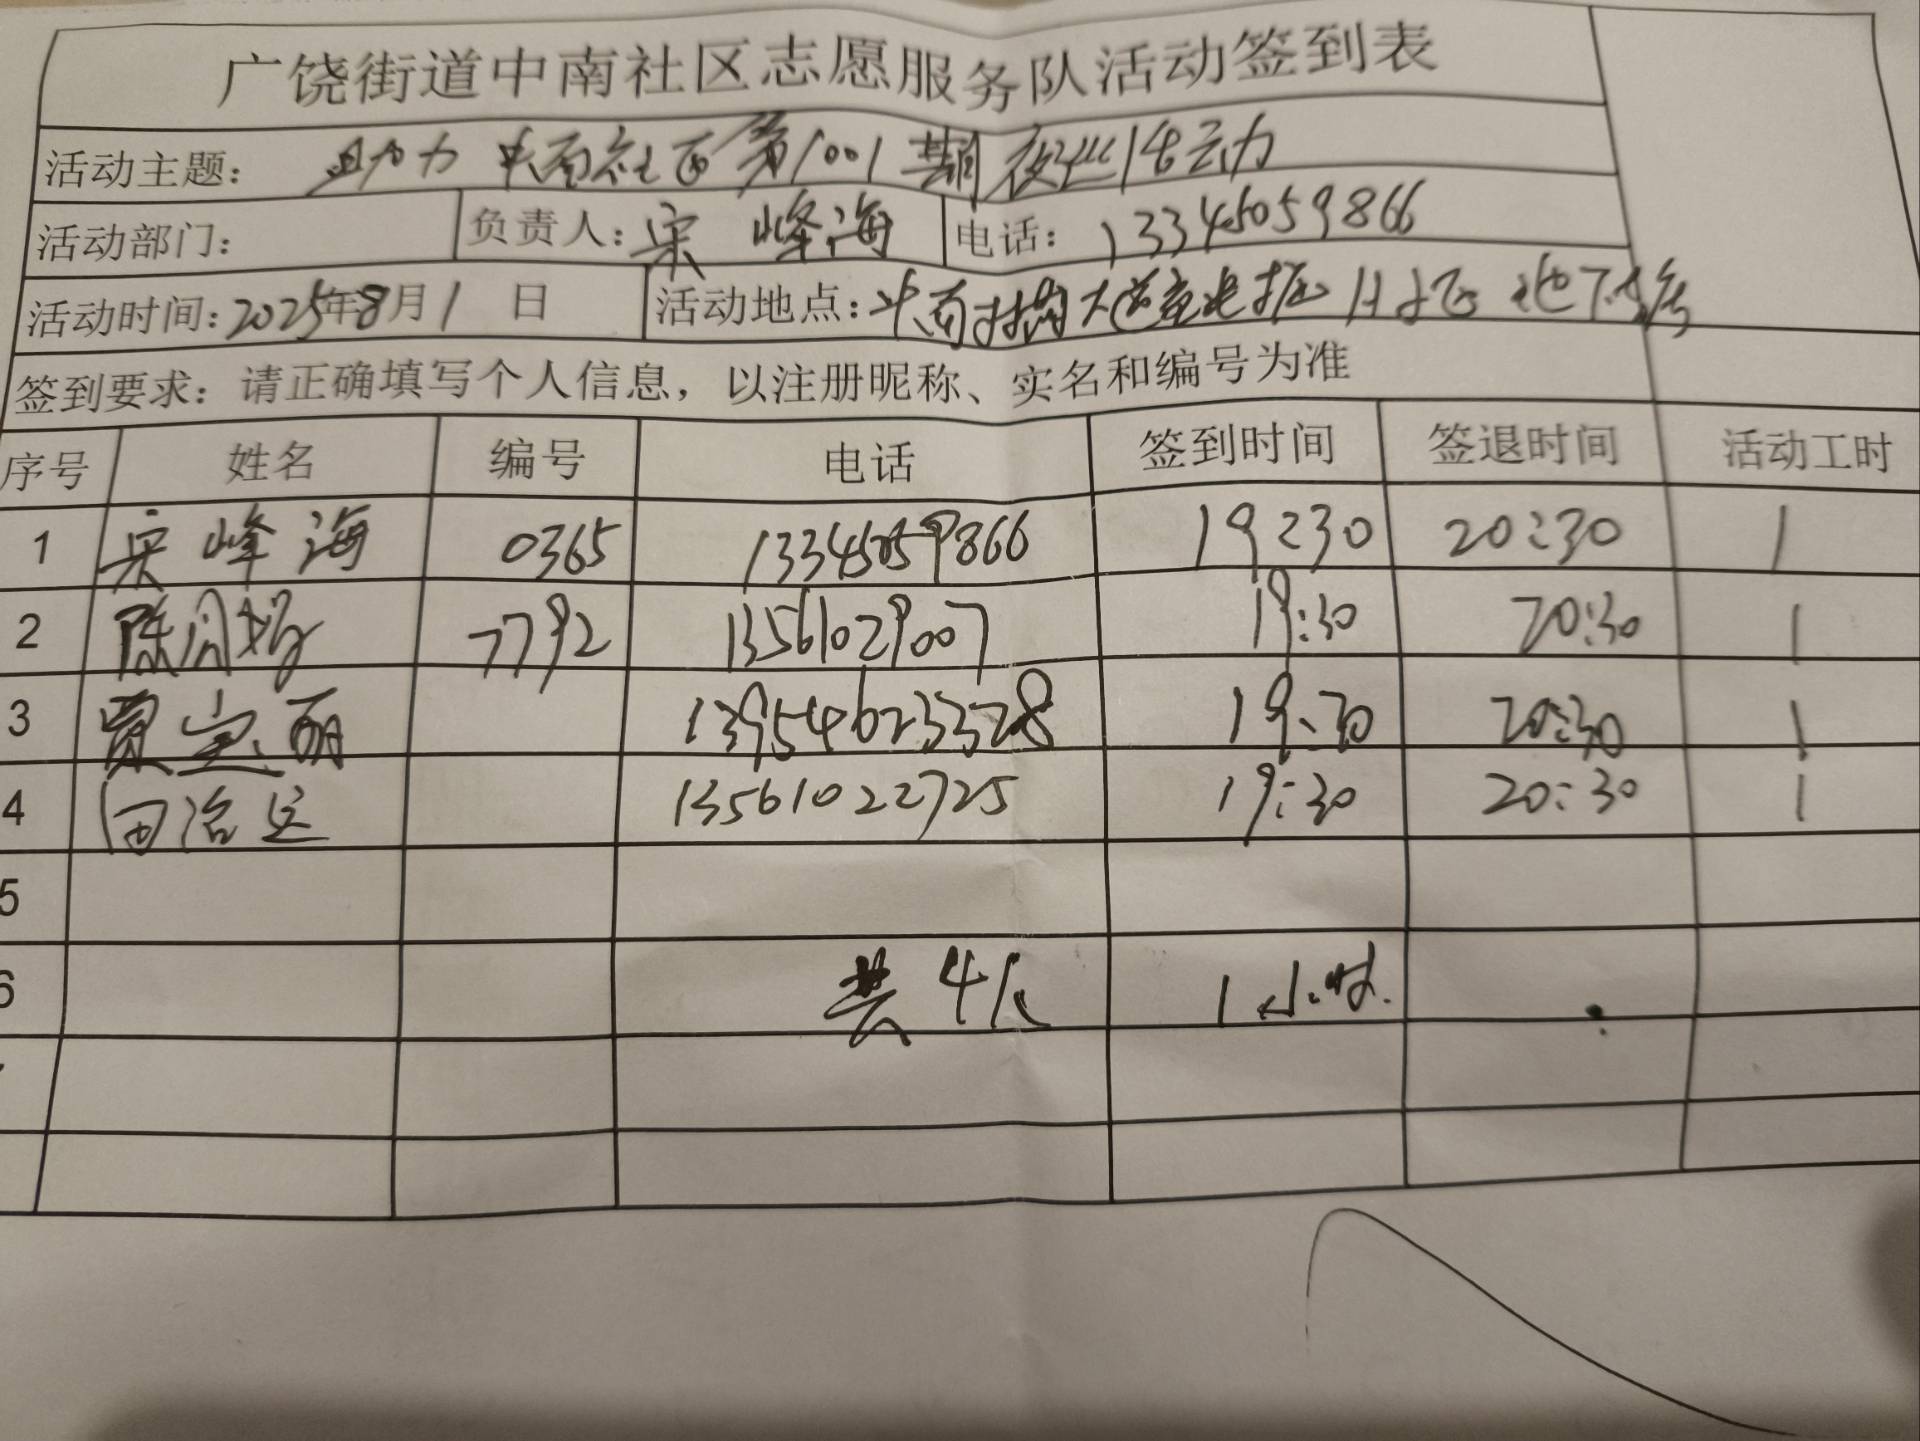 广饶街道中南社区志愿服务队活动签到表
活动主题： 助力中南社区第1001期夜巡活动
活动部门： 负责人：宋峰海 电话：13345059866
活动时间：2025年8月1日 活动地点：中南 地下
签到要求：请正确填写个人信息，以注册昵称、实名和编号为准
序号 姓名 编号 电话 签到时间 签退时间 活动工时
1 宋峰海 0365 13345059866 19:30 20:30 1
2 陈 7792 13561029007 19:30 20:30 1
3 贾宝丽 139546233328 19:30 20:30 1
4 田治运 13561022725 19:30 20:30 1
5
6 共4人 1小时.